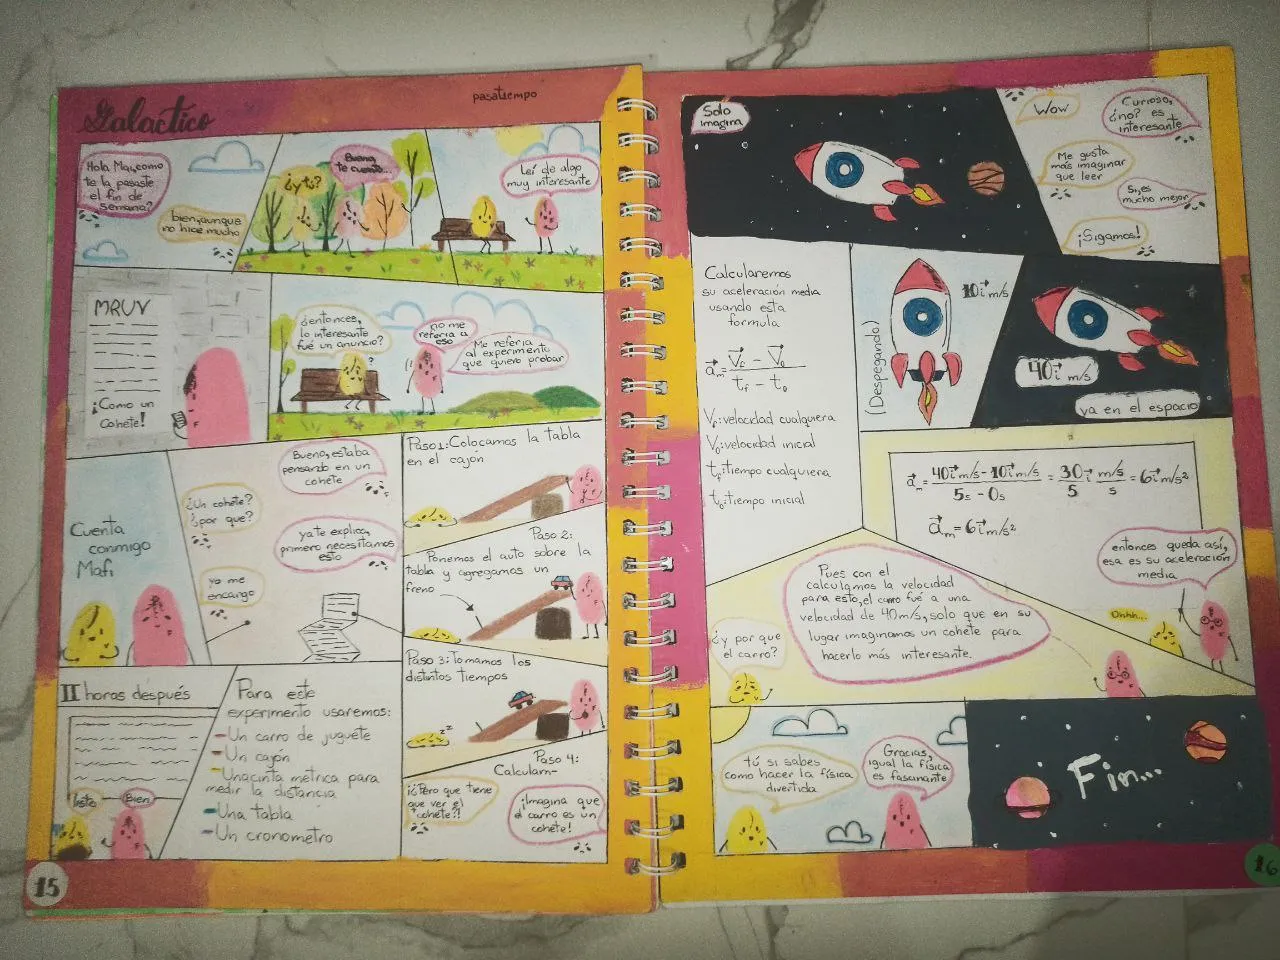 Galactico
pasatiempo
Hola Mai,como
te la pasaste
el fin de
semana?
bien,aunque
no hice mucho
¿y tú?
Bueno,
te cuento...
Leí de algo
muy interesante
MRUV
¡Como un
Cohete!
¿entonces,
lo interesante
fué un anuncio?
no me
referia a
eso
Me referia
al experimento
que quiero probar
Cuenta
conmigo
Mafi
Bueno,estaba
pensando en un
cohete
¿Un cohete?
¿por que?
ya te explico,
primero necesitamos
esto
yo me
encargo
II horas después
listo
Bien
Para este
experimento usaremos:
-Un carro de juguete
-Un cajón
-Una cinta metrica para
medir la distancia
-Una tabla
-Un cronometro
Paso 1: Colocamos la tabla
en el cajón
Paso 2:
Ponemos el auto sobre la
tabla y agregamos un
freno
Paso 3: Tomamos los
distintos tiempos
Paso 4:
Calculam-
¡¿Pero que tiene
que ver el
cohete?!
¡Imagina que
el carro es un
cohete!
15
Solo
imagina
Wow
Curioso,
¿no? es
interesante
Me gusta
más imaginar
que leer
Si,es
mucho mejor
¡Sigamos!
Calcularemos
su aceleración media
usando esta
formula
a⃗m = V⃗f - V⃗o / tf - to
Vf:velocidad cualquiera
Vo:velocidad inicial
tf:tiempo cualquiera
to:tiempo inicial
(Despegando)
10i⃗ m/s
40i⃗ m/s
ya en el espacio
a⃗m = 40i⃗ m/s - 10i⃗ m/s / 5s - 0s = 30i⃗ m/s / 5 s = 6i⃗ m/s²
a⃗m = 6i⃗ m/s²
entonces queda así,
esa es su aceleración
media
Ohhh...
Pues con el
calculamos la velocidad
para esto,el carro fué a una
velocidad de 40m/s,solo que en su
lugar imaginamos un cohete para
hacerlo más interesante.
¿y por que
el carro?
tú si sabes
como hacer la física
divertida
Gracias,
igual la física
es fascinante
Fin...
16